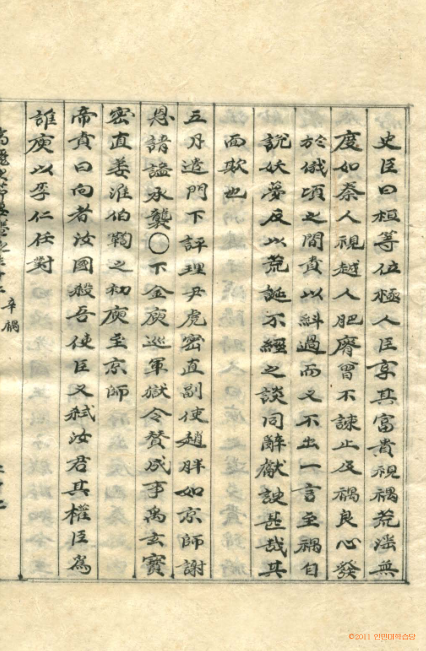 史臣曰桓等位極人臣享其富貴視禑荒淫無
度如秦人視越人肥瘠曾不諫止及禑良心發
於俄頃之間責以糾過而又不出一言至禑自
說妖夢反以荒誕不經之談同辭獻諛甚哉其
面欺也
五月遣門下評理尹虎密直副使趙胖如京師謝
恩請諡承襲〇下金庾巡軍獄令贊成事禹玄寶
密直姜淮伯鞫之初庾至京師
帝責曰向者汝國殺吾使臣又弑汝君其權臣爲
誰庾以李仁任對
辛禑
©2011 인민대학습당